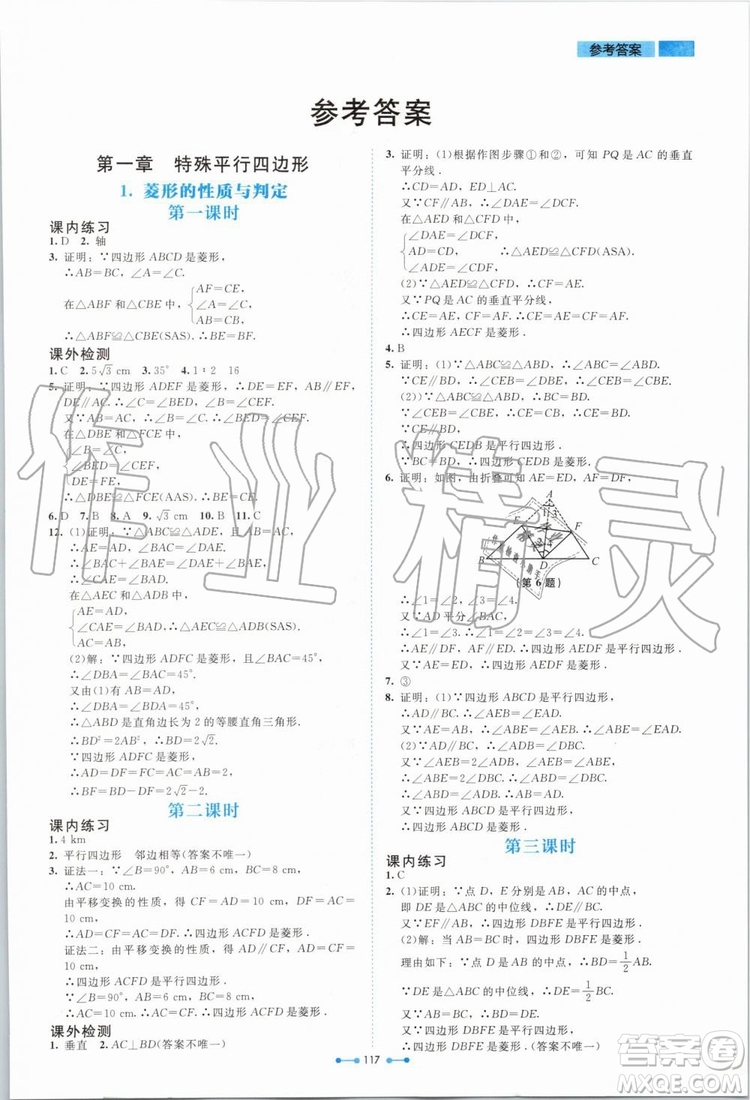 参考答案
参考答案
第一章 特殊平行四边形
1. 菱形的性质与判定
第一课时
课内练习
1. D 2. 轴
3. 证明：∵四边形 ABCD 是菱形，
∴AB=BC，∠A=∠C.
在△ABF 和△CBE 中，{AF=CE，
∠A=∠C，
AB=CB，
∴△ABF≌△CBE(SAS). ∴BF=BE.
课外检测
1. C 2. 5√3 cm 3. 35° 4. 1∶2 16
5. 证明：∵四边形 ADEF 是菱形，∴DE=EF，AB∥EF，
DE∥AC. ∴∠C=∠BED，∠B=∠CEF.
又∵AB=AC，∴∠B=∠C. ∴∠BED=∠CEF.
在△DBE 和△FCE 中，
{∠B=∠C，
∠BED=∠CEF，
DE=FE，
∴△DBE≌△FCE(AAS). ∴BE=CE.
6. D 7. B 8. A 9. √3 cm 10. B 11. C
12. (1)证明：∵∠CAB=∠EAD，
∴∠BAC+∠BAE=∠EAD+∠BAE.
∴∠CAE=∠BAD.
在△ACE 和△ABD 中，
{AE=AD，
∠CAE=∠BAD，
AC=AB，
∴△ACE≌△ABD(SAS).
(2)解：∵四边形 ADFC 是菱形，且∠BAC=45°，
∴∠DBA=∠BAC=45°.
又由(1)有 AB=AD，
∴∠DBA=∠BDA=45°.
∴△ABD 是直角边长为 2 的等腰直角三角形.
∴BD²=2AB²，∴BD=2√2.
又∵四边形 ADFC 是菱形，
∴AD=DF=FC=AC=AB=2.
∴BF=BD-DF=2√2-2.
第二课时
课内练习
1. 4 km
2. 平行四边形 邻边相等(答案不唯一)
3. 证法一：∵∠B=90°，AB=6 cm，BC=8 cm，
∴AC=10 cm.
由平移变换的性质，得 CF=AD=10 cm，DF=AC=
10 cm，
∴AD=CF=AC=DF.
∴四边形 ACFD 是菱形.
证法二：由平移变换的性质，得 AD∥CF，AD=CF，
∴四边形 ACFD 是平行四边形.
∵∠B=90°，AB=6 cm，BC=8 cm，
∴AC=10 cm. ∴AD=CF=10 cm，
∴四边形 ACFD 是菱形.
课外检测
1. 垂直 2. AC⊥BD(答案不唯一)
3. 证明：(1)根据作图步骤①和②，可知 PQ 是 AC 的垂直
平分线.
∴CD=AD，ED⊥AC.
又∵CF∥AB，∴∠EAD=∠DCF.
在△AED 和△CFD 中，
{∠EAD=∠DCF，
AD=CD，
∠ADE=∠CDF，
∴△AED≌△CFD(ASA).
(2)∵△AED≌△CFD，∴CF=AE.
又∵PQ 是 AC 的垂直平分线，
∴CE=AE，CF=AF. ∴CE=AE=CF=AF.
∴四边形 AECF 是菱形.
4. B
5. 证明：(1)∵△ABC≌△ABD，∴∠ABC=∠ABD.
∵CE∥BD，∴∠CEB=∠DBE. ∴∠CEB=∠CBE.
(2)∵△ABC≌△ABD，∴BC=BD.
又∵∠CEB=∠CBE，∴CE=CB. ∴CE=BD.
又∵CE∥BD，
∴四边形 CEDB 是平行四边形.
∵BC=BD，∴四边形 CEDB 是菱形.
6. 证明：如图，由折叠可知 AE=DE，AF=DF，
A
E F
B D C
(第 6 题)
∴∠1=∠3，∠2=∠4.
又∵AD 平分∠BAC，
∴∠1=∠2. ∴∠1=∠4，∠2=∠3.
∴AE∥DF，AF∥DE. ∴四边形 AEDF 是平行四边形.
又∵AE=ED，∴四边形 AEDF 是菱形.
7. ③
8. 证明：(1)∵四边形 ABCD 是平行四边形，
∴AD∥BC. ∴∠AEB=∠EAD.
又∵AE=AB，∴∠ABE=∠AEB. ∴∠ABE=∠EAD.
(2)∵AD∥BC，∴∠ADB=∠DBE.
又∵∠AEB=2∠ADB，∠ABE=∠AEB，
∴∠ABE=2∠ADB=2∠DBC.
∴∠ABD=∠ABE-∠DBC=∠DBC.
∴∠ABD=∠ADB. ∴AB=AD.
又∵四边形 ABCD 是平行四边形，
∴四边形 ABCD 是菱形.
第三课时
课内练习
1. C
2. (1)证明：∵点 D，E 分别是 AB，AC 的中点，
即 DE 是△ABC 的中位线，∴DE∥BC.
又∵EF∥AB，∴四边形 DBFE 是平行四边形.
(2)解：当 AB=BC 时，四边形 DBFE 是菱形.
理由如下：∵点 D 是 AB 的中点，∴BD=1/2AB.
∵DE 是△ABC 的中位线，∴DE=1/2BC.
又∵AB=BC，∴BD=DE.
又∵四边形 DBFE 是平行四边形，
∴四边形 DBFE 是菱形.(答案不唯一)
117
作业精灵
答案圈
MXQE.COM